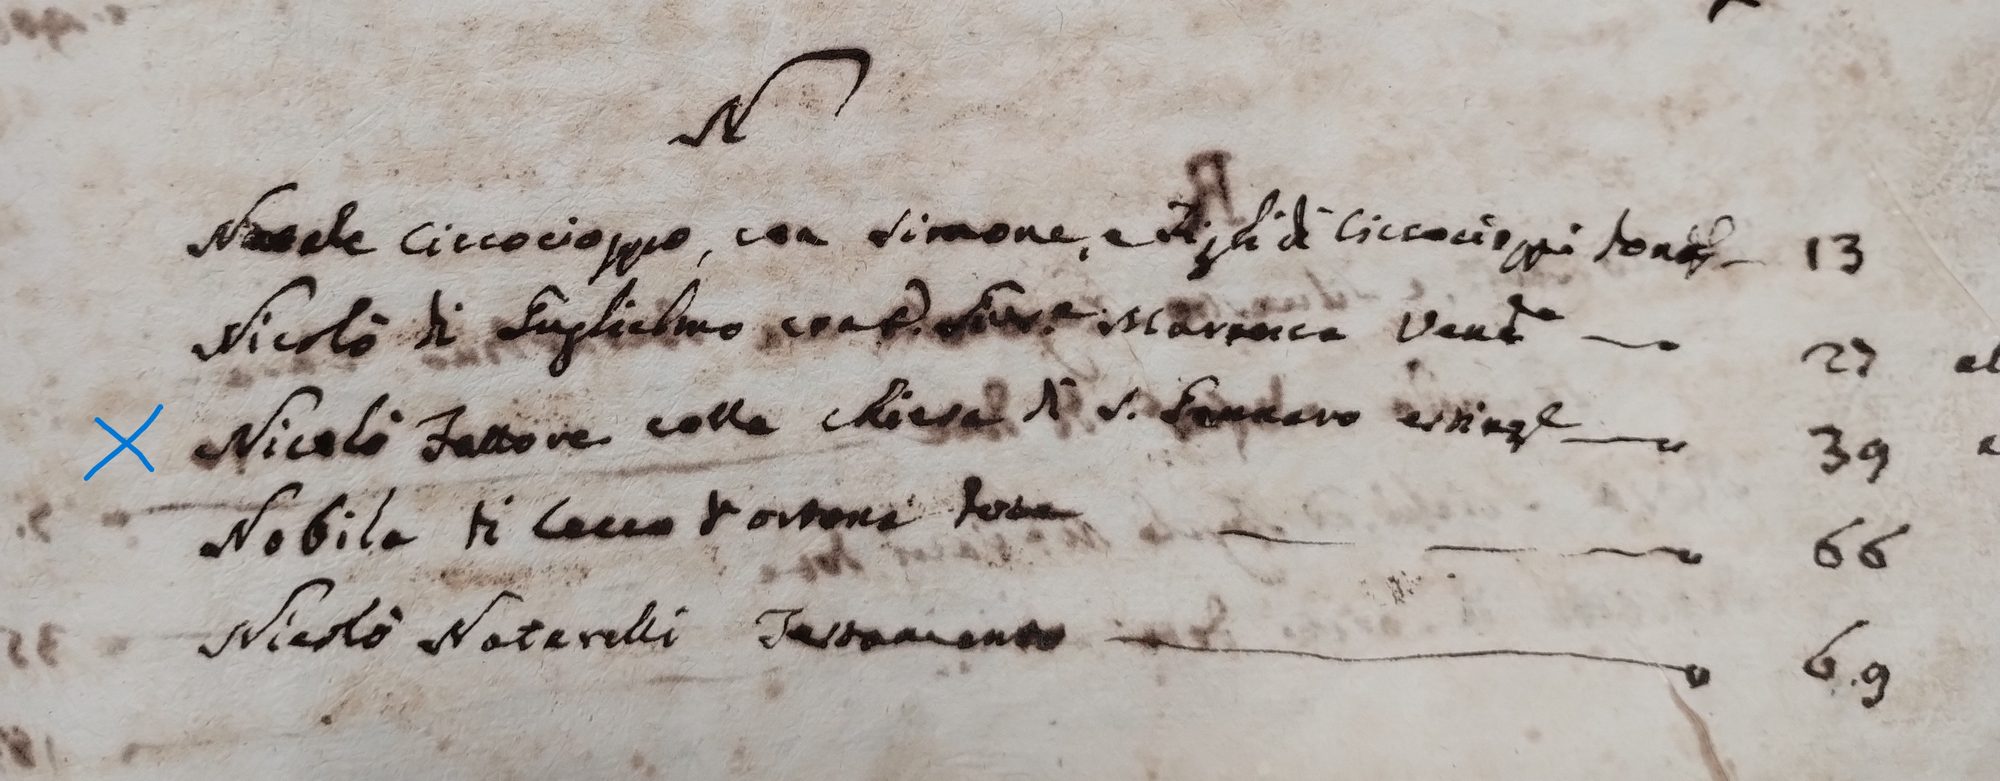 N
Natale Ciccocioppo, con Simone, e figli di Ciccocioppi 13
Nicolò di Guglielmo con Maronca Vend.ta 27 al
Nicolò Fattore colla Chiesa di S. Gennaro 39 a
Nobila di Cecco d'ortona 66
Nicolò Notarelli Testamento 69